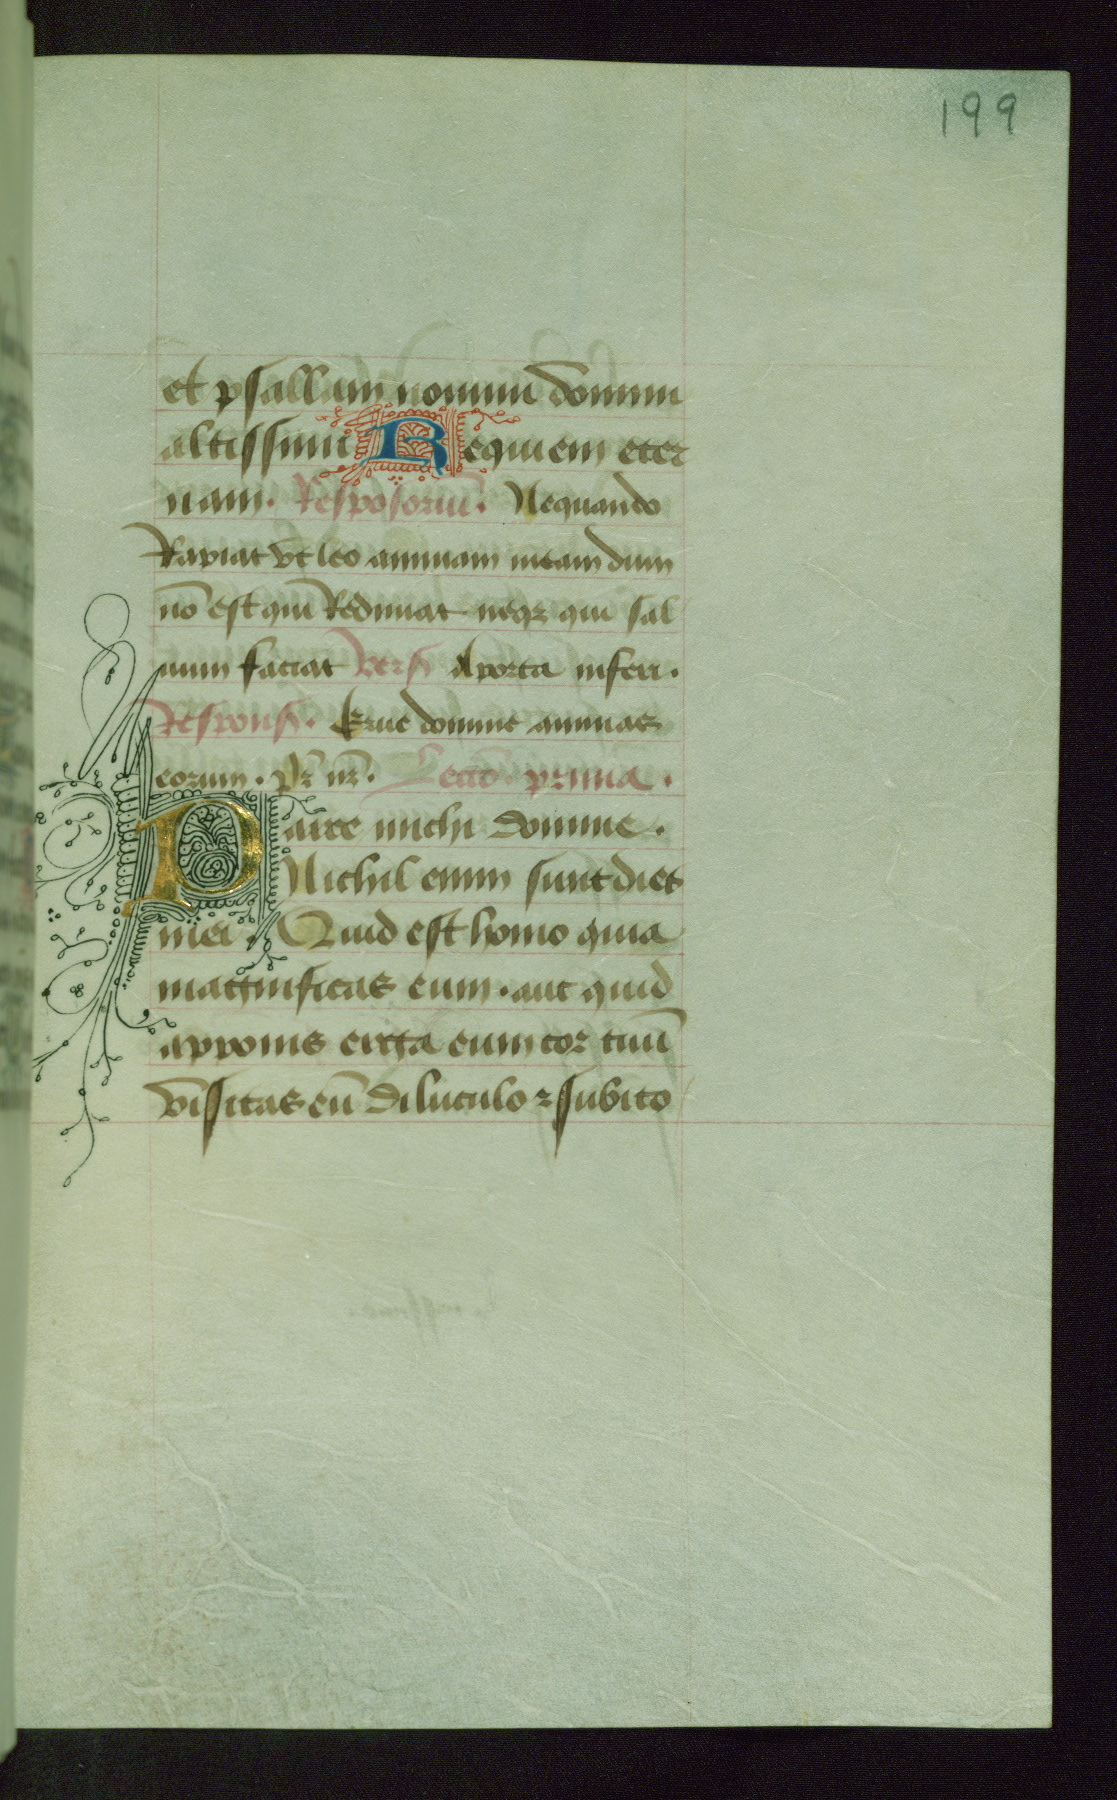 199
et psallam nomini domini
altissimi Requiem eter
nam. Resposoriū. Nequando
Rapiat vt leo animam meam dum
nō est qui Redimat neqꝫ qui sal
uum faciat Vers A porta inferi.
Respons. Erue domine animas
eorum. Pr̄ nr̄. Lectō prima.
Parce michi domine.
Nichil enim sunt dies
mei. Quid est homo quia
magnificas eum. aut quid
apponis circa eum cor tuū
visitas eū diluculo ⁊ subito